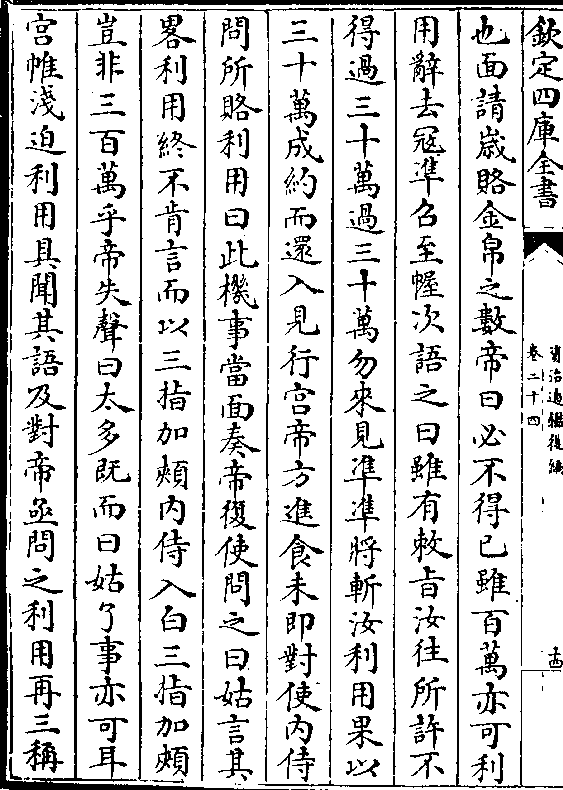 欽定四庫全書
資治通鑑後編
卷二十四
十四
也面請嵗賂金帛之數帝曰必不得已雖百萬亦可利
用辭去冦準召至幄次語之曰雖有敕㫖汝往所許不
得過三十萬過三十萬勿來見凖凖將斬汝利用果以
三十萬成約而還入見行宫帝方進食未即對使内侍
問所賂利用曰此機事當面奏帝復使問之曰姑言其
畧利用終不肯言而以三指加頰内侍入白三指加頰
豈非三百萬乎帝失聲曰太多旣而曰姑了事亦可耳
宫帷淺迫利用具聞其語及對帝亟問之利用再三稱